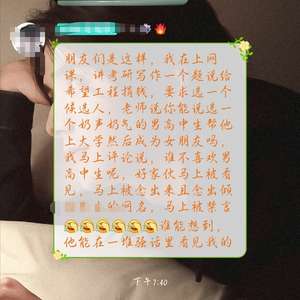 朋友们是这样，我在上网
课，讲考研写作一个题说给
希望工程捐钱，要求选一个
候选人，老师说你能说选一
个奶声奶气的男高中生帮他
上大学然后成为女朋友吗，
我马上评论说，谁不喜欢男
高中生呢，好家伙马上被看
见，马上被念出来且念出倾
的网名，马上被禁言
谁能想到，
他能在一堆强话里看见我的
下午1:40